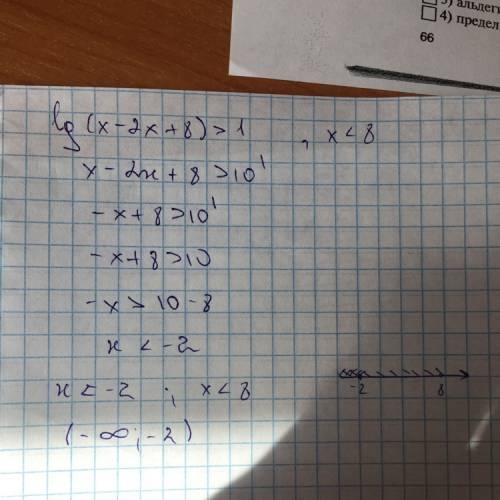 3) альдеги
4) предел
66
lg (x - 2x + 8) > 1 , x < 8
x - 2x + 8 > 10¹
- x + 8 > 10¹
- x + 8 > 10
- x > 10 - 8
x < -2
x < -2 ; x < 8
-2 8
(-∞; -2)